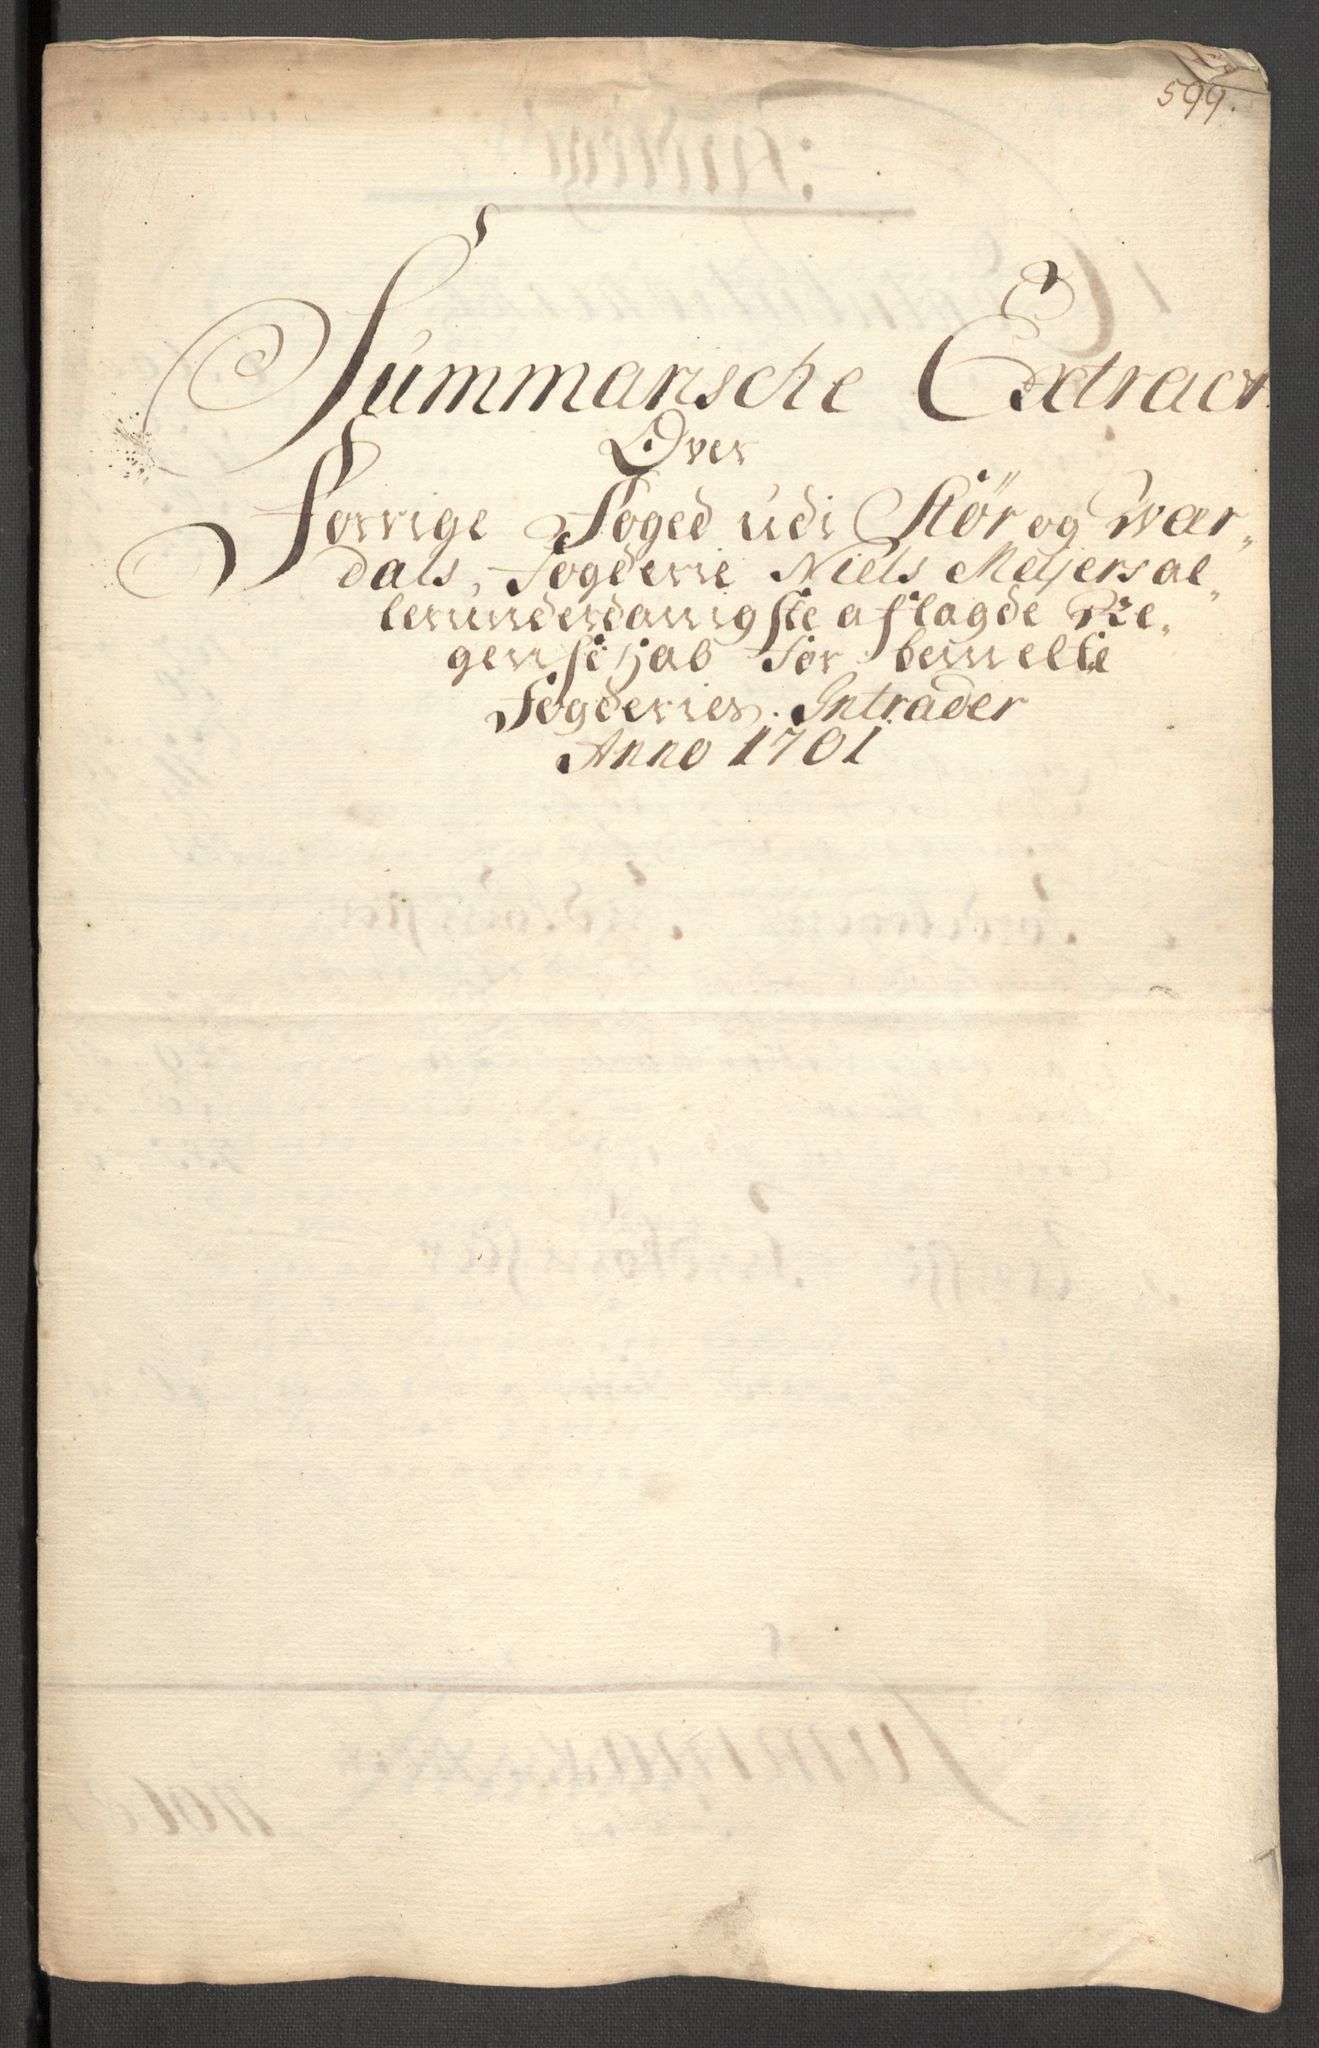 599.
Summarische Extract
Over
Forrige Foged udi Stør og War„
dals, Fogderie Niels Meÿers al„
lerunderdanigste aflagde Re„
genskjab for bemelte
Fogderies Intrader
Anno 1701